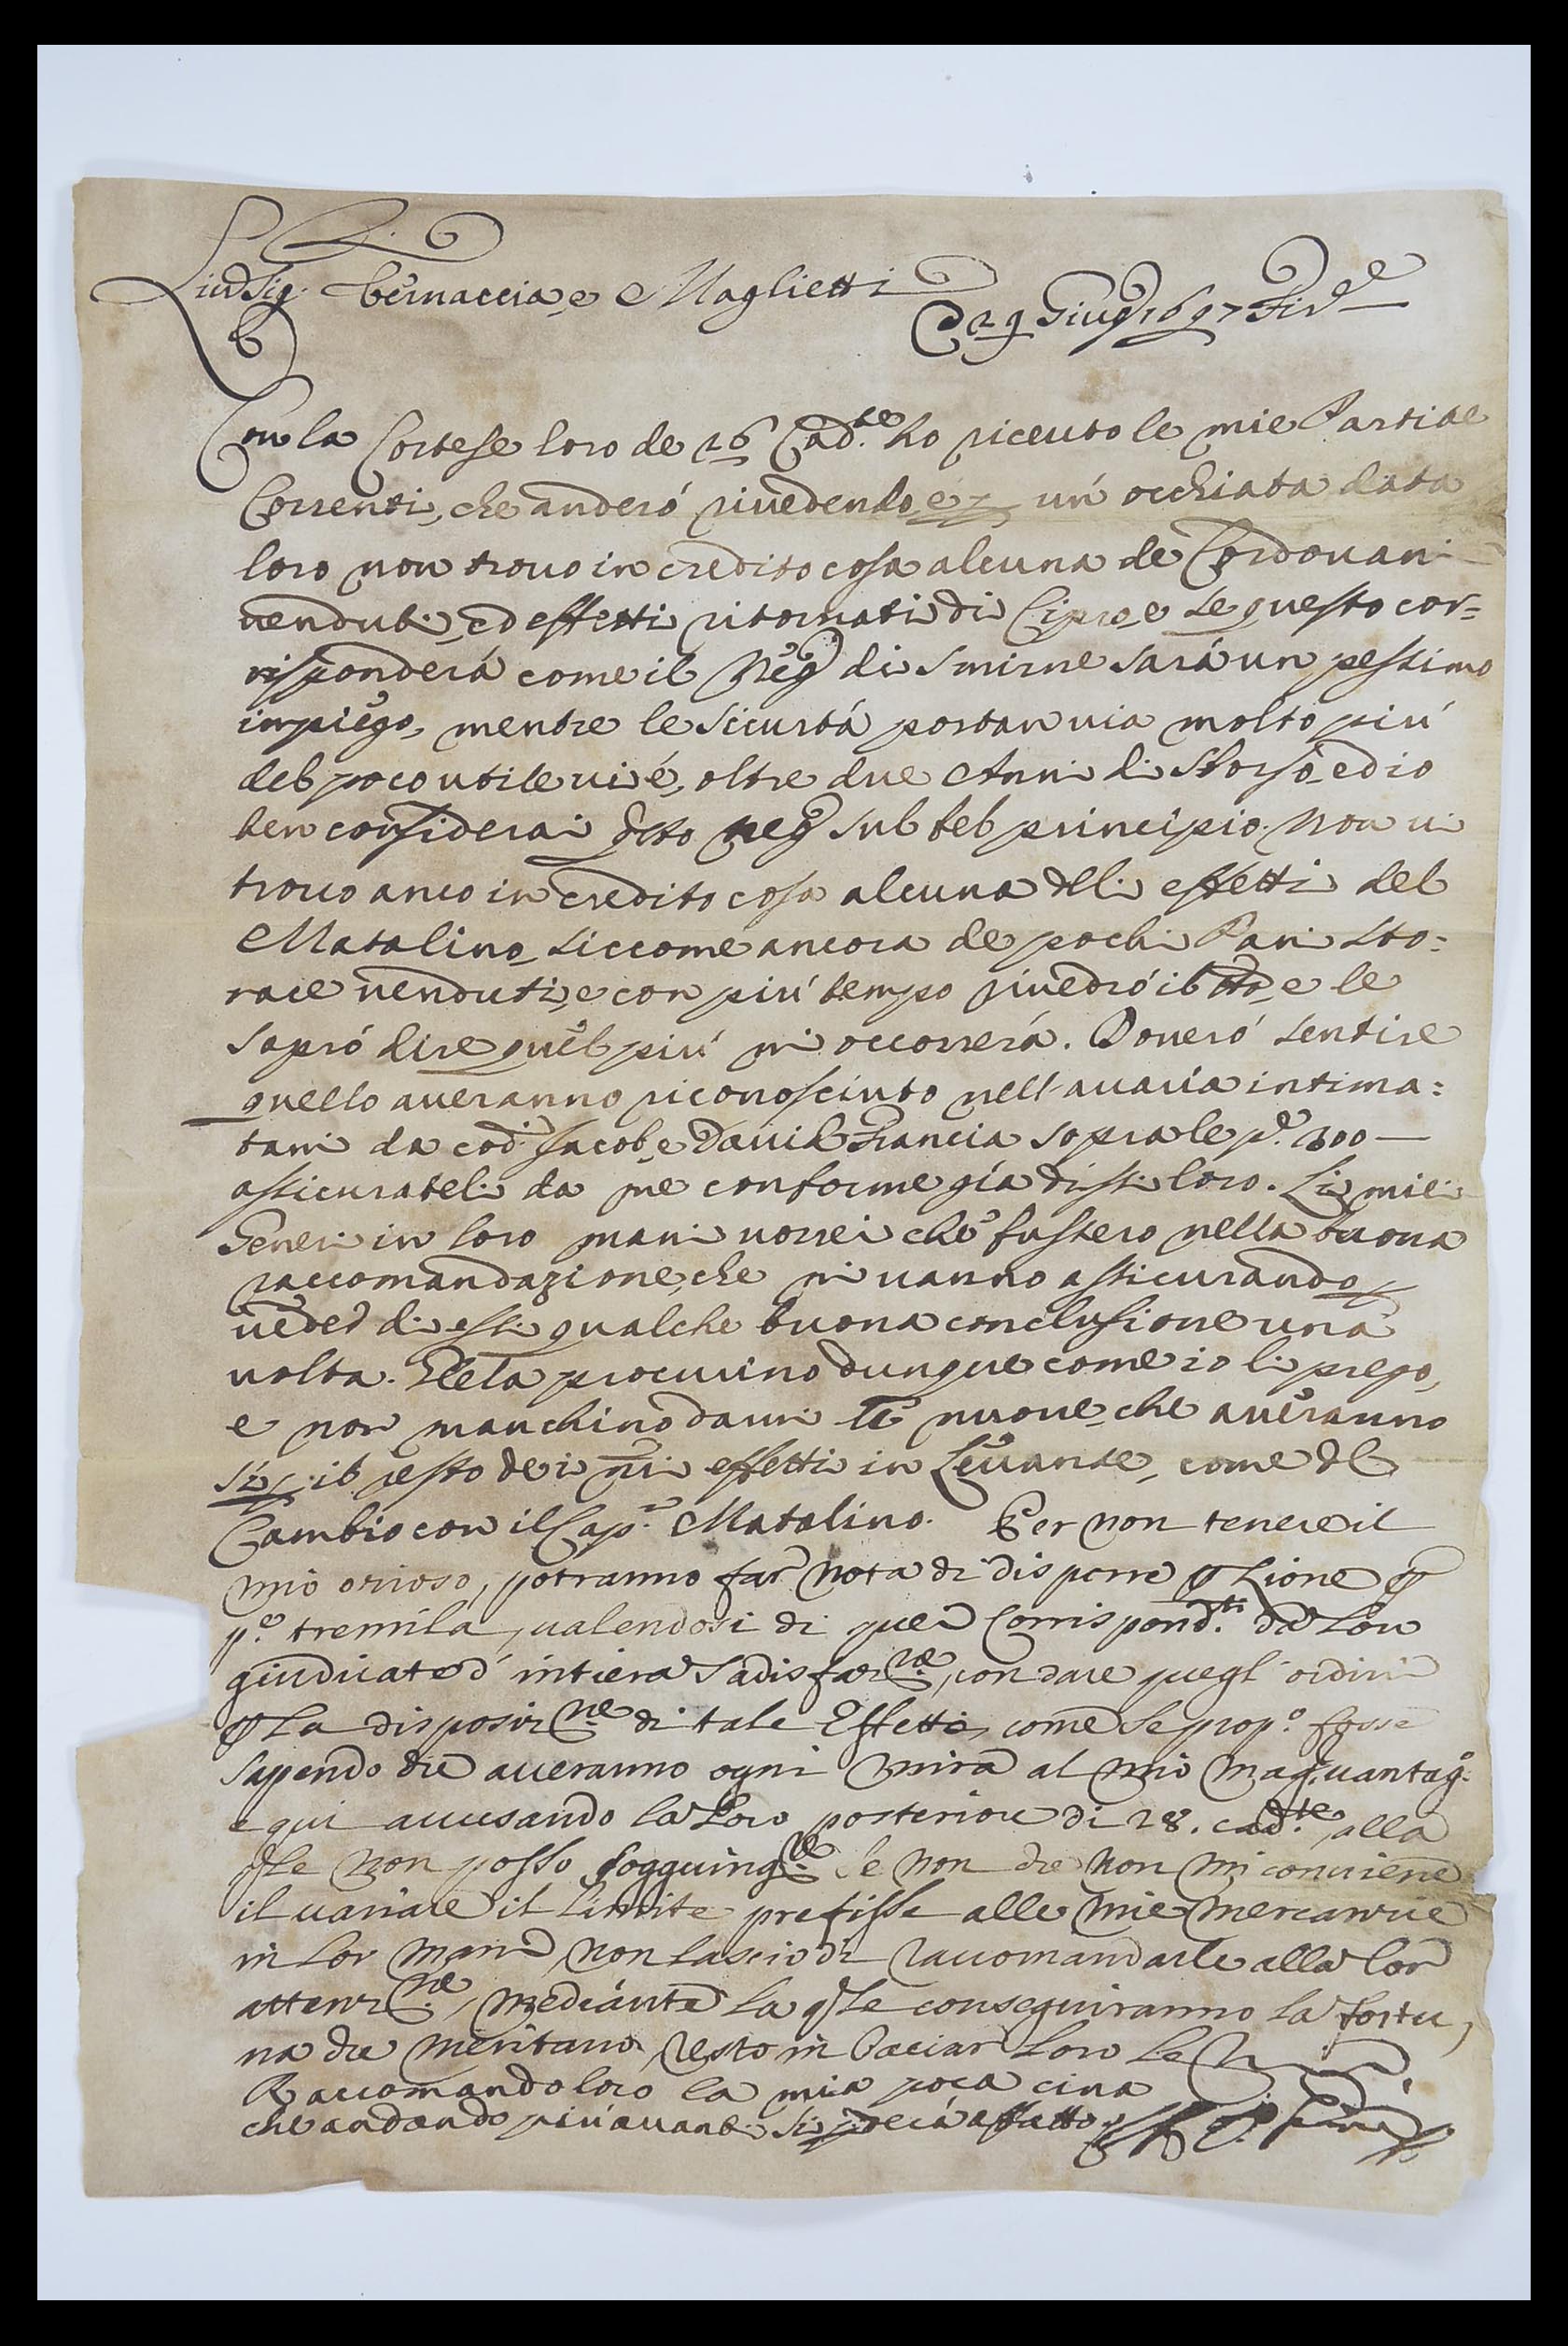 Sig. Bernaccia, e Maglietti
29 Giug. 1697
Con la Cortese loro de 26 Cad.te ho riceuto le mie Partite
Correnti, che anderó riuedendo, e un' occhiata data
loro non trouo in credito cosa alcuna de Cordouani
uenduti, ed effetti ritornati di Cipro, e se questo cor=
risponderá come il Neg. di Smirne sará un pessimo
inpiego, mentre le Sicurtá portan uia molto piú
del poco utile ui é, oltre due Anni di Storso, ed io
ben considerai neg. sul bel principio. Non ui
trouo anco in credito cosa alcuna delli effetti del
Matalino, siccome ancora de pochi Pani Sto=
race uenduti, e con piú tempo riuedró il e le
sapró dire quel piú mi occorrerá. Doueró sentire
quello aueranno riconosciuto nell' auaria intima=
tami da cod. Jacob, e Dauid Francia sopra le p.e 300 —
assicurateli da me conforme giá dissi loro. Li miei
Generi in loro mani uorrei che fussero nella buona
raccomandazione, che mi uanno assicurando
ueder di essi qualche buona conclusione una
uolta. procurino dunque come io li prego,
e non manchino darmi le nuoue, che aueranno
il resto dei mi effetti in Leuante, come del
Cambio con il Cap. Matalino. Per non tenere il
mio ozioso, potranno far nota di disporre p Lione p
p.e tremila, ualendosi di quei Corrispond.ti da Loro
giudicate d' intiera Sadisfaz.ne, con dare quegl' ordini
p La disposiz.ne di tale Effetto, come se prop.o fosse
sapendo che aueranno ogni mira al mio mag. uantag.
e qui accusando la Loro posteriore di 28. cad.te, alla
qle non posso soggiung.re se non che non mi conuiene
il uariare il Limite prefisse alle mie mercanzie
in Lor mani, non lascio di raccomandarle alla Lor
attenz.ne, mediánte la qle conseguiranno la fortu,
na che meritano, resto in baciar Loro Le
Raccomando loro la mia poca cina
che andando piú auanti si affatto